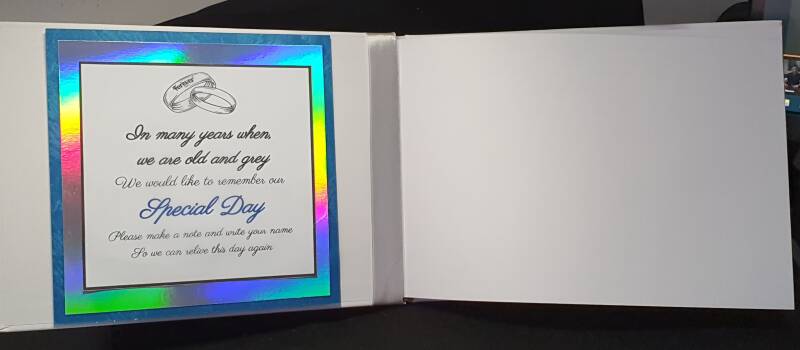 Forever
In many years when,
we are old and grey
We would like to remember our
Special Day
Please make a note and write your name
So we can relive this day again